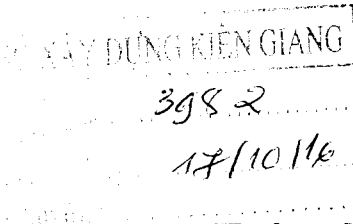 XÂY DỰNG KIÊN GIANG
3982
17/10/16